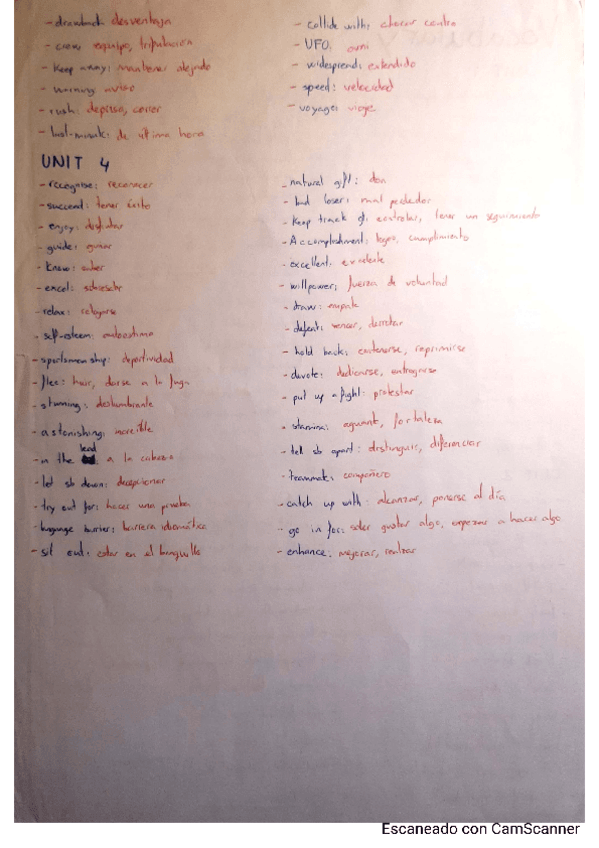 - drawback: desventaja
- crew: equipo, tripulación
- Keep away: mantener alejado
- warning: aviso
- rush: deprisa, correr
- last-minute: de última hora
- collide with: chocar contra
- UFO: ovni
- widespread: extendido
- speed: velocidad
- voyage: viaje
UNIT 4
- recognise: reconocer
- succeed: tener éxito
- enjoy: disfrutar
- guide: guiar
- Know: saber
- excel: sobresalir
- relax: relajarse
- self-esteem: autoestima
- sportsmanship: deportividad
- flee: huir, darse a la fuga
- stunning: deslumbrante
- astonishing: increíble
- in the lead: a la cabeza
- let sb down: decepcionar
- try out for: hacer una prueba
- language barrier: barrera idiomática
- sit out: estar en el banquillo
- natural gift: don
- bad loser: mal perdedor
- Keep track of: controlar, tener un seguimiento
- Accomplishment: logro, cumplimiento
- excellent: excelente
- willpower: fuerza de voluntad
- draw: empate
- defeat: vencer, derrotar
- hold back: contenerse, reprimirse
- devote: dedicarse, entregarse
- put up a fight: protestar
- stamina: aguante, fortaleza
- tell sb apart: distinguir, diferenciar
- teammate: compañero
- catch up with: alcanzar, ponerse al día
- go in for: soler gustar algo, empezar a hacer algo
- enhance: mejorar, realzar
Escaneado con CamScanner